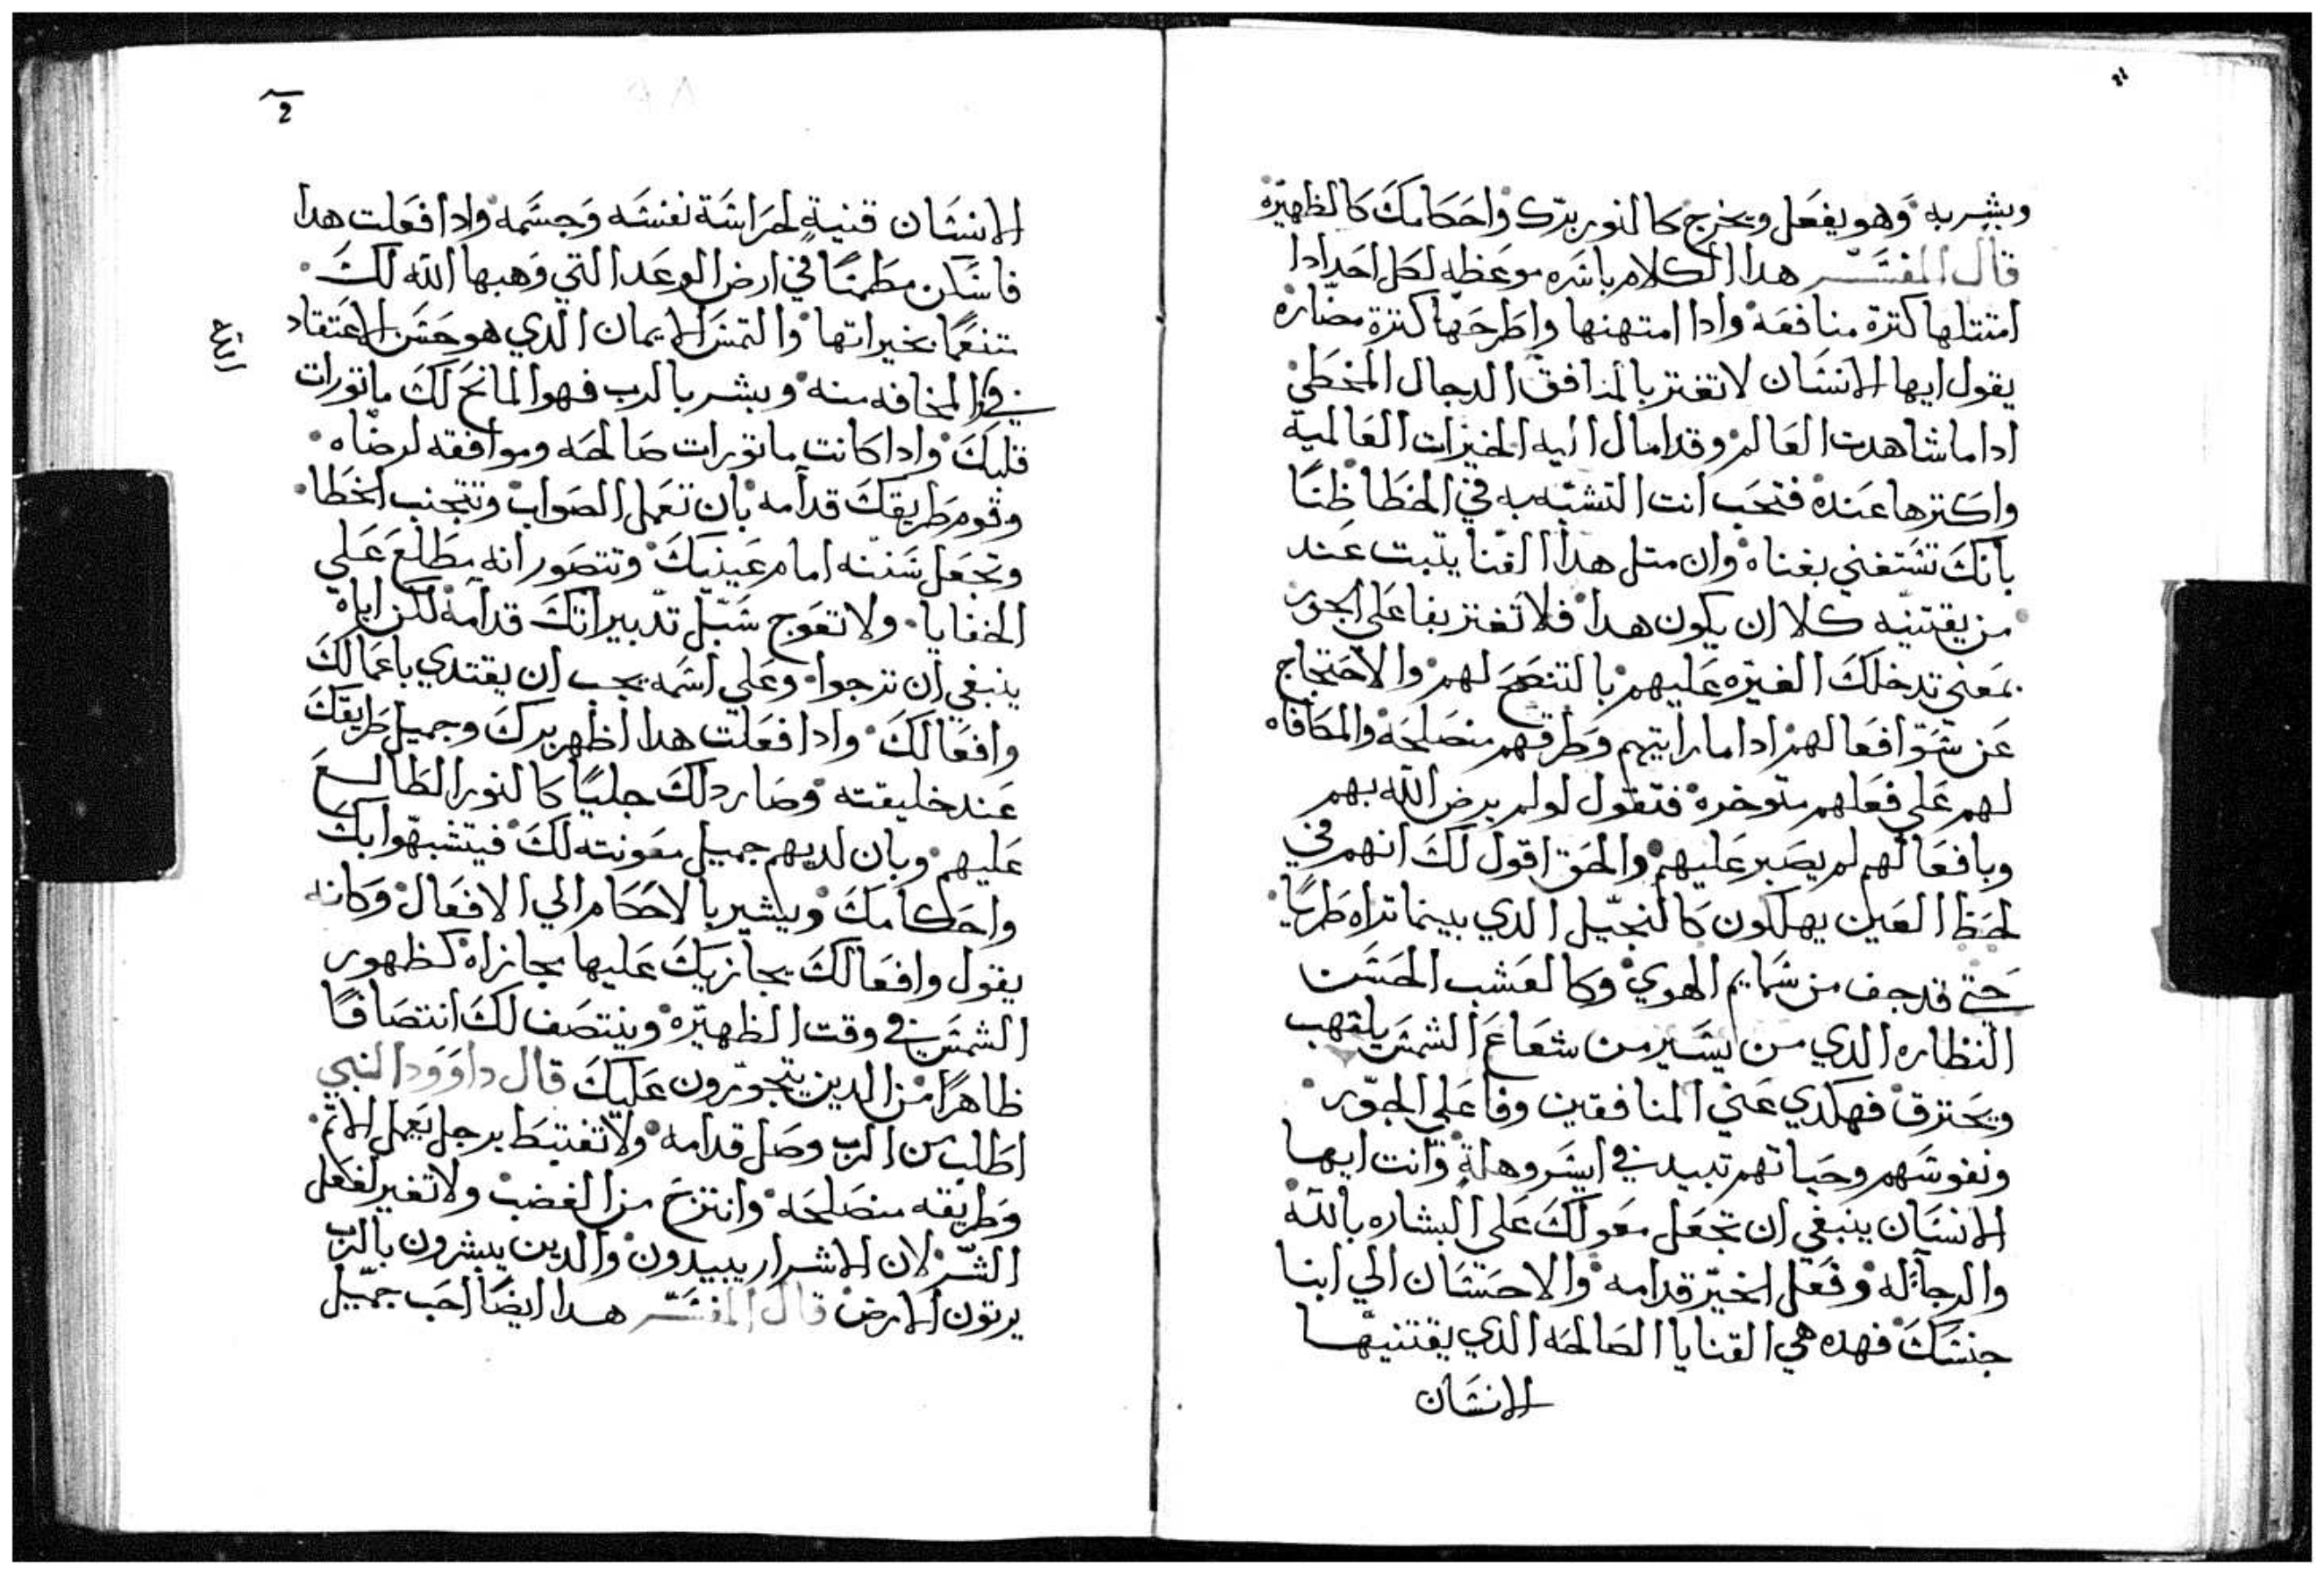 وبشر به وهو يفعل ويخرج كالنور برك واحكامك كالظهيره
قال المفسر هدا الكلام باسره موعظه لكل احد ادا
امتتلها كترة منافعه وادا امتهنها واطرحها كترة مضاره
يقول ايها الانسان لا تغتر بالمنافق الدجال المخطي
ادا ما شاهدت العالم وقد امال اليه الخيرات العالمية
واكترها عنده فتحب انت التشبه به في الخطا ظنًا
بانك تستغني بغناه وان متل هدا الغنا يتبت عند
من يقتنيه كلا ان يكون هدا فلا تغتر بفاعلي الجور
بمعني تدخلك الغيره عليهم بالتنصح لهم والاحتجاج
عن سوّ افعالهم ادا ما رايتهم وطرقهم منصلحه والمكافاه
لهم علي فعلهم متوخره فتقول لو لم يرض الله بهم
وبافعالهم لم يصبر عليهم والحق اقول لك انهم في
لحظ العين يهلكون كالنجيل الدي بينما تراه طريًا
حتي قد جف من سمايم الهوي وكالعشب الحسن
النظاره الدي من يسير من شعاع الشمس يلتهب
ويحترق فهكدي غني المنافقين وفاعلي الجور
ونفوسهم وحياتهم تبيد في ايسر وهلةٍ وانت ايها
الانسان ينبغي ان تجعل معولك علي البشاره بالله
والرجاء له وفعل الخير قدامه والاحسان الي ابنا
جنسك فهده هي القنايا الصالحه الدي يقتنيها
الانسان
الانسان قنيةٍ لحراسة نفسه وجسمه وادا فعلت هدا
فاسكن مطمنًا في ارض الوعد التي وهبها الله لك
متنعمًا بخيراتها والتمس الايمان الدي هو حسن الاعتقاد
في المخافه منه وبشر بالرب فهو المانح لك ماتورات
قلبك وادا كانت ماتورات صالحه وموافقه لرضاه
وقوم طريقك قدامه بان تعمل الصواب وتتجنب الخطا
وتجعل سننه امام عينيك وتتصور انه مطلع علي
الخفايا ولا تعوج سبل تدبيراتك قدامه لكن اياه
ينبغي ان ترجوا وعلي اسمه يجب ان يقتدي باعمالك
وافعالك وادا فعلت هدا اظهر برك وجميل طريقك
عند خليقته وصار دلك جليًا كالنور الطالع
عليهم وبان لديهم جميل معونته لك فيتشبهوا بك
واحكامك ويشير بالاحكام الي الافعال وكانه
يقول وافعالك يجازيك عليها مجازاه كظهور
الشمس في وقت الظهيره وينتصف لك انتصافًا
ظاهرًا من الدين يتجورون عليك قال داوود النبي
اطلب من الرب وصل قدامه ولا تغتبط برجل يعمل الاتم
وطريقه منصلحه وانتزح من الغضب ولا تغير لفعل
الشر لان الاشرار يبيدون والدين يبشرون بالرب
يرتون الارض قال المفسر هدا ايضًا احب جميل